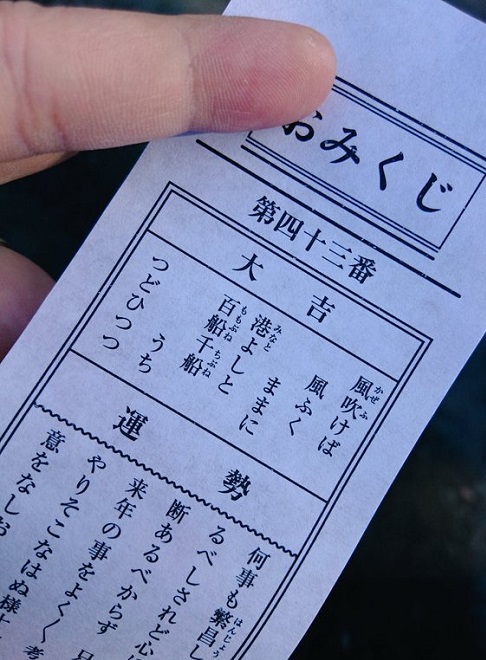 おみくじ
第四十三番
大吉
風吹けば
風ふく
ままに
港よしと
百船千船
うち
つどひつつ
運勢
何事も繁昌し
るべしされど心に
断あるべからず
来年の事をよくよく考
やりそこなはぬ様
意をなしお